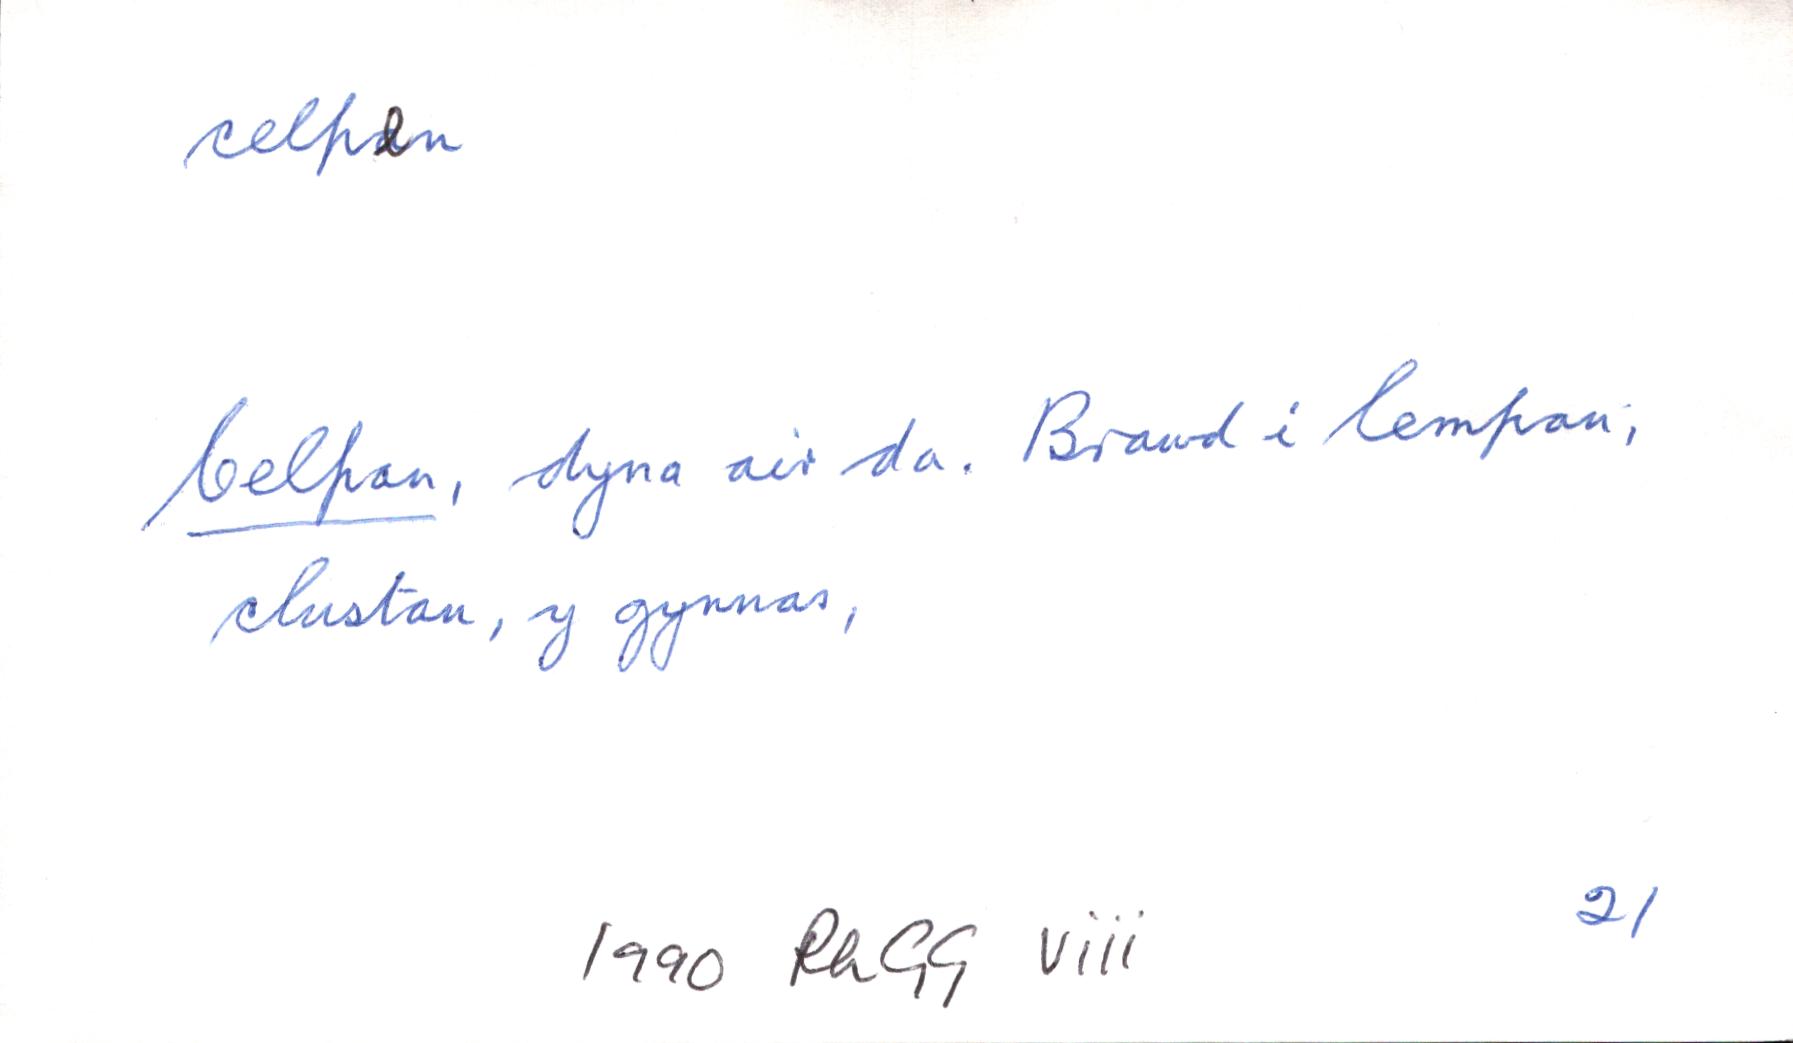 celpen
Celpan, dyna air da. Brawd i lempan,
clustan, y gynnas,
21
1990 RhGG viii